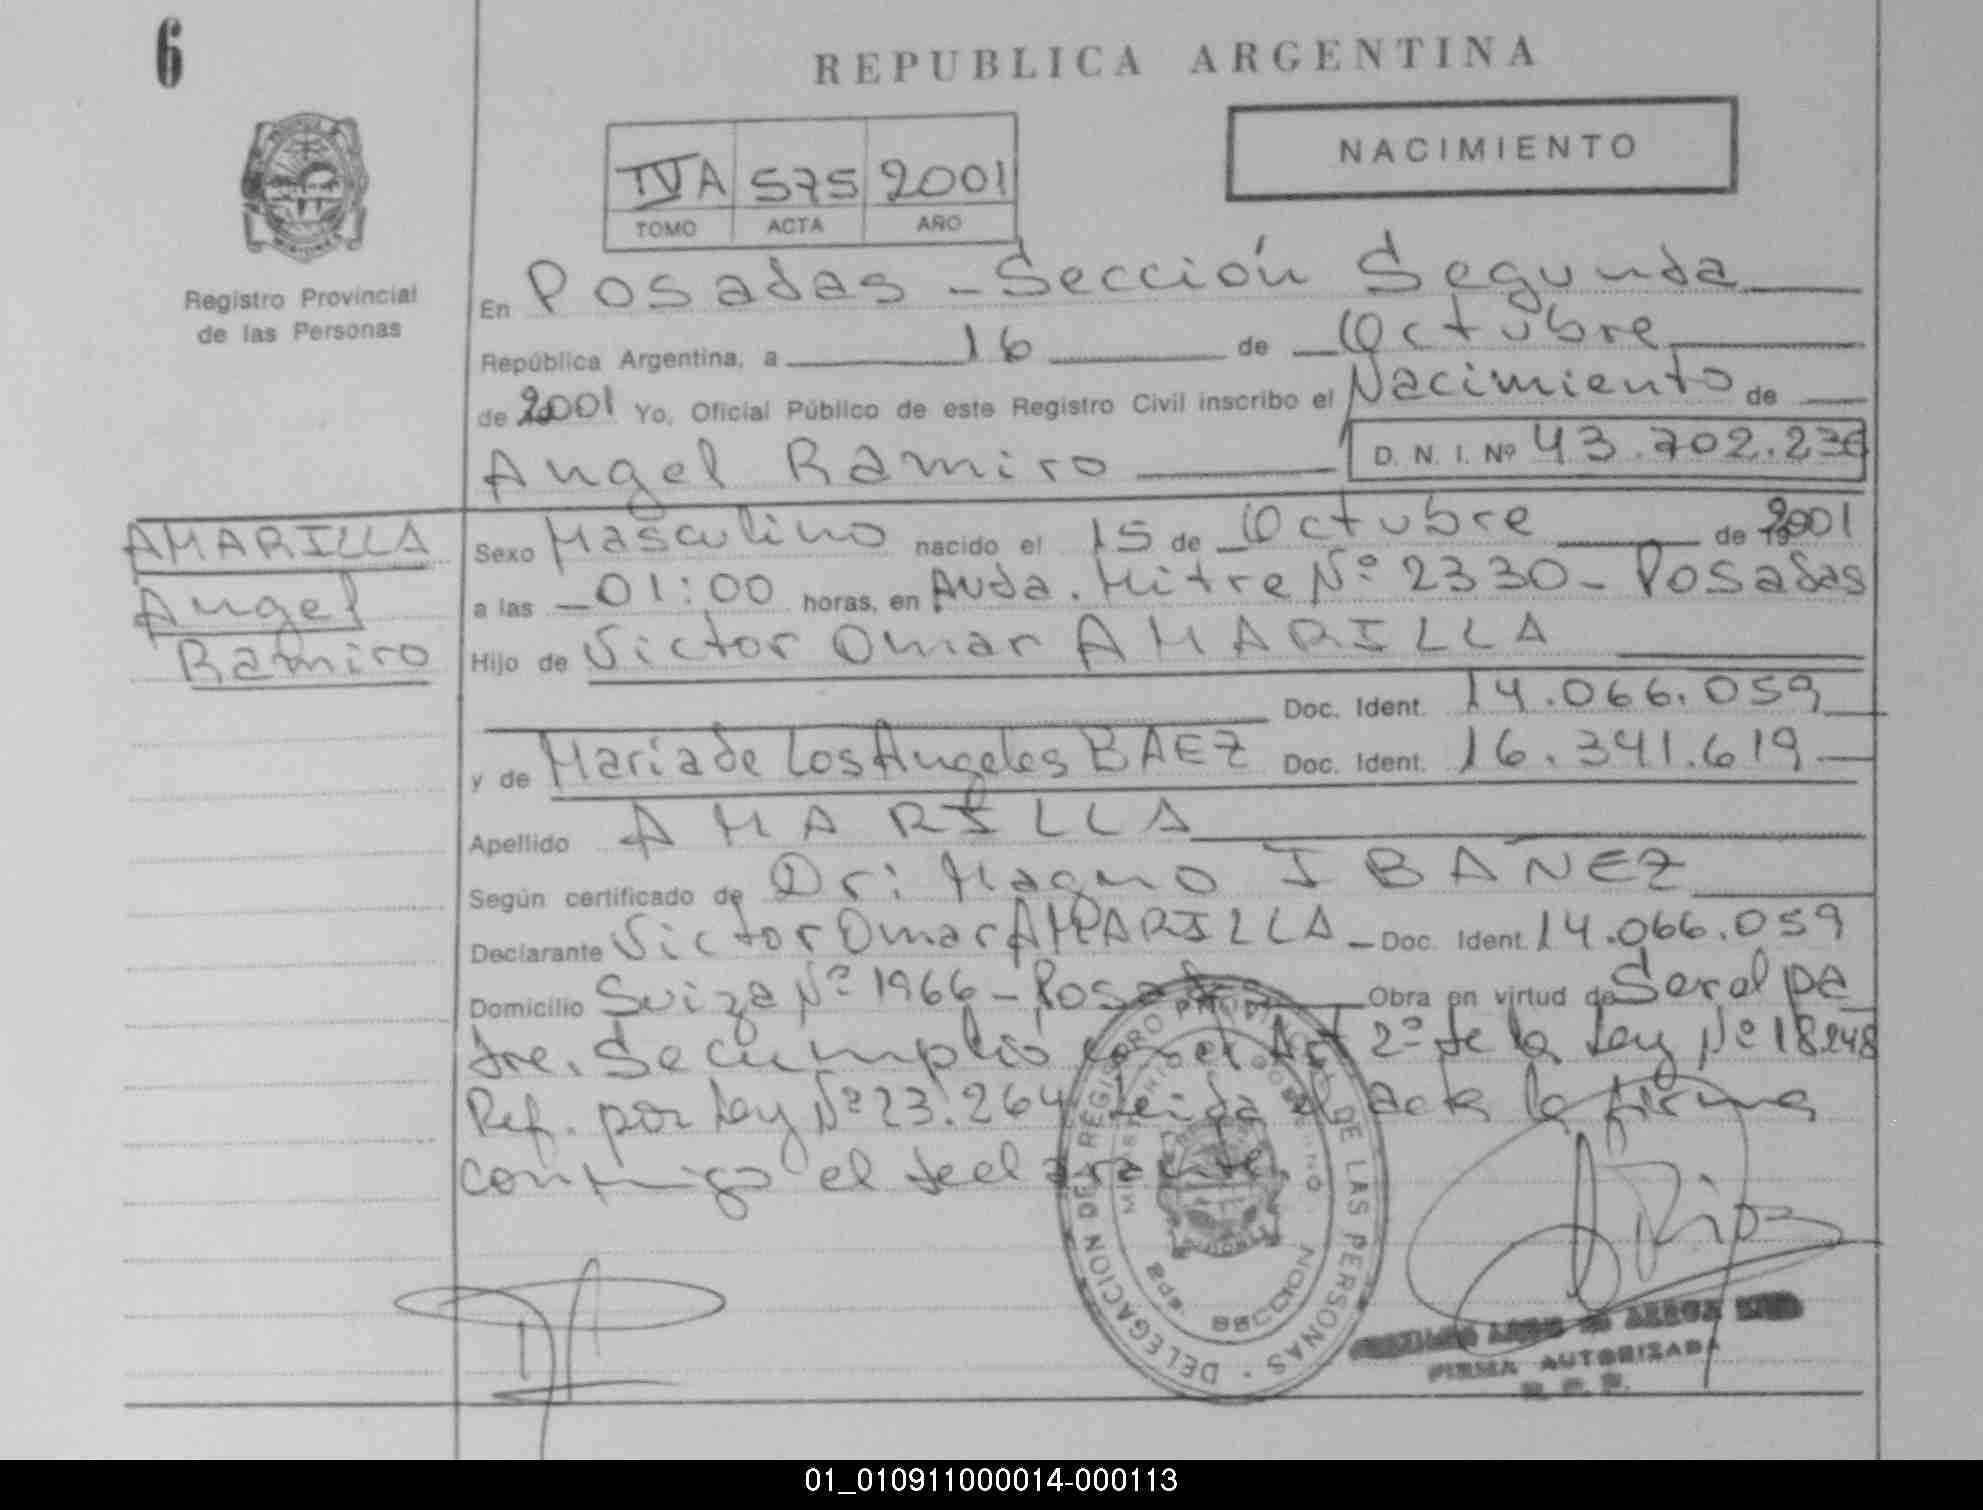 6
REPUBLICA ARGENTINA
NACIMIENTO
IVA 575 2001
TOMO ACTA AÑO
Registro Provincial
de las Personas
En Posadas - Sección Segunda
República Argentina, a 16 de Octubre
de 2001 Yo, Oficial Público de este Registro Civil inscribo el Nacimiento de
Angel Ramiro D. N. I. Nº 43.702.236
AMARILLA
Angel
Ramiro
Sexo Masculino nacido el 15 de Octubre de 2001
a las 01:00 horas, en Avda. Mitre Nº 2330 - Posadas
Hijo de Victor Omar AMARILLA
Doc. Ident. 14.066.059
y de María de Los Angeles BAEZ Doc. Ident. 16.341.619
Apellido AMARILLA
Según certificado de Dr: Magno IBAÑEZ
Declarante Victor Omar AMARILLA - Doc. Ident. 14.066.059
Domicilio Suiza Nº 1966 - Posadas Obra en virtud de Ser el pa
dre. Se cumplió con el Art 2º de la Ley Nº 18248
Ref. por Ley Nº 23.264 Leida el acta la firma
conmigo el declarante.
DELEGACION DEL REGISTRO PROVINCIAL DE LAS PERSONAS
MINISTERIO DE GOBIERNO
2da SECCION
Rios
FIRMA AUTORIZADA
R. P. P.
01_010911000014-000113